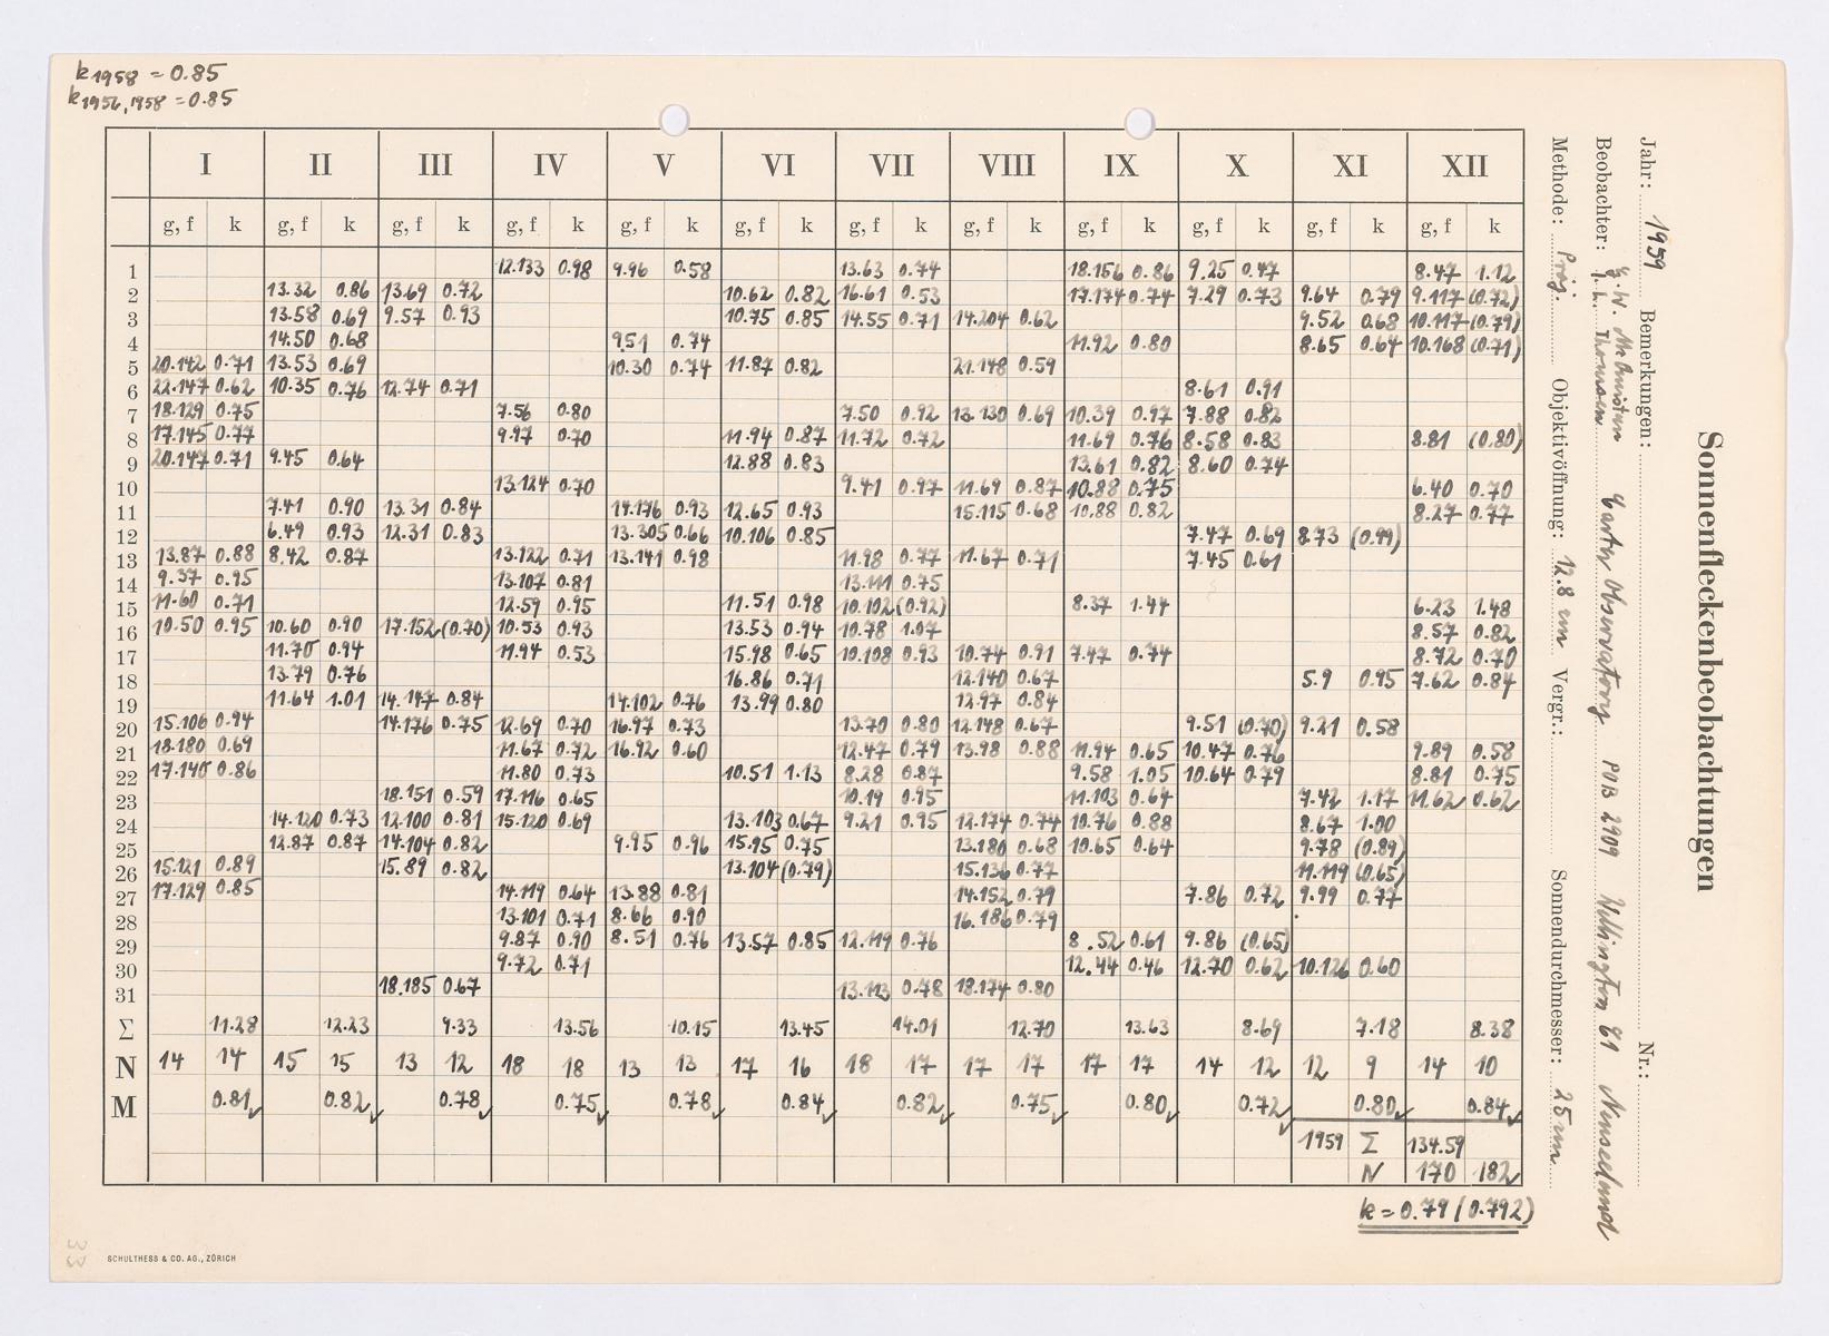 k1958 = 0.85
k1956,1958 = 0.85
Sonnenfleckenbeobachtungen
Jahr: 1959 Bemerkungen: Nr.:
Beobachter: Thomsen Carter Observatory POB 2909 Wellington C1 Neuseeland
Methode: Proj. Objektivöffnung: 12.8 cm Vergr.: Sonnendurchmesser: 25 cm
I II III IV V VI VII VIII IX X XI XII
g, f k g, f k g, f k g, f k g, f k g, f k g, f k g, f k g, f k g, f k g, f k g, f k
1 12.133 0.98 9.96 0.58 13.63 0.74 18.156 0.86 9.25 0.47 8.47 1.12
2 13.32 0.86 13.69 0.72 10.62 0.82 16.61 0.53 17.174 0.74 7.29 0.73 9.64 0.79 9.117 (0.72)
3 13.58 0.69 9.57 0.93 10.75 0.85 14.55 0.71 14.204 0.62 9.52 0.68 10.117 (0.79)
4 14.50 0.68 9.51 0.74 11.92 0.80 8.65 0.64 10.168 (0.71)
5 20.142 0.71 13.53 0.69 10.30 0.74 11.87 0.82 21.148 0.59
6 22.147 0.62 10.35 0.76 12.74 0.71 8.61 0.91
7 18.129 0.75 7.56 0.80 7.50 0.92 13.130 0.69 10.39 0.97 7.88 0.82
8 17.145 0.77 9.97 0.70 11.94 0.87 11.72 0.72 11.69 0.76 8.58 0.83 8.81 (0.80)
9 20.147 0.71 9.45 0.64 12.88 0.83 13.61 0.82 8.60 0.74
10 13.124 0.70 9.41 0.97 11.69 0.87 10.88 0.75 6.40 0.70
11 7.41 0.90 13.31 0.84 14.176 0.93 12.65 0.93 15.115 0.68 10.88 0.82 8.27 0.77
12 6.49 0.93 12.31 0.83 13.305 0.66 10.106 0.85 7.47 0.69 8.73 (0.99)
13 13.87 0.88 8.42 0.87 13.122 0.71 13.141 0.98 11.98 0.77 11.67 0.71 7.45 0.61
14 9.37 0.95 13.107 0.81 13.111 0.75
15 11.60 0.71 12.59 0.95 11.51 0.98 10.102 (0.92) 8.37 1.44 6.23 1.48
16 10.50 0.95 10.60 0.90 17.152 (0.70) 10.53 0.93 13.53 0.94 10.78 1.07 8.57 0.82
17 11.70 0.94 11.94 0.53 15.98 0.65 10.108 0.93 10.74 0.91 7.47 0.74 8.72 0.70
18 13.79 0.76 16.86 0.71 12.140 0.67 5.9 0.95 7.62 0.84
19 11.64 1.01 14.147 0.84 14.102 0.76 13.99 0.80 12.97 0.84
20 15.106 0.94 14.176 0.75 12.69 0.70 16.97 0.73 13.70 0.80 12.148 0.67 9.51 (0.70) 9.21 0.58
21 18.180 0.69 11.67 0.72 16.92 0.60 12.47 0.79 13.98 0.88 11.94 0.65 10.47 0.76 9.89 0.58
22 17.140 0.86 11.80 0.73 10.51 1.13 8.28 0.87 9.58 1.05 10.64 0.79 8.81 0.75
23 18.151 0.59 17.116 0.65 10.19 0.95 11.103 0.64 7.42 1.17 11.62 0.62
24 14.120 0.73 12.100 0.81 15.120 0.69 13.103 0.67 9.21 0.95 12.174 0.74 10.76 0.88 8.67 1.00
25 12.87 0.87 14.104 0.82 9.95 0.96 15.95 0.75 13.180 0.68 10.65 0.64 9.78 (0.89)
26 15.121 0.89 15.89 0.82 13.104 (0.79) 15.136 0.77 11.119 (0.65)
27 17.129 0.85 14.119 0.64 13.88 0.81 14.152 0.79 7.86 0.72 9.99 0.77
28 13.101 0.71 8.66 0.90 16.186 0.79
29 9.87 0.90 8.51 0.76 13.57 0.85 12.119 0.76 8.52 0.61 9.86 (0.65)
30 9.72 0.71 12.44 0.46 12.70 0.62 10.126 0.60
31 18.185 0.67 13.113 0.78 18.174 0.80
Σ 11.28 12.23 9.33 13.56 10.15 13.45 14.01 12.70 13.63 8.69 7.18 8.38
N 14 14 15 15 13 12 18 18 13 13 17 16 18 17 17 17 17 17 14 12 12 9 14 10
M 0.81 0.82 0.78 0.75 0.78 0.84 0.82 0.75 0.80 0.72 0.80 0.84
1959 Σ 134.59
N 170 182
k = 0.79 (0.792)
33
SCHULTHESS & CO. AG., ZÜRICH